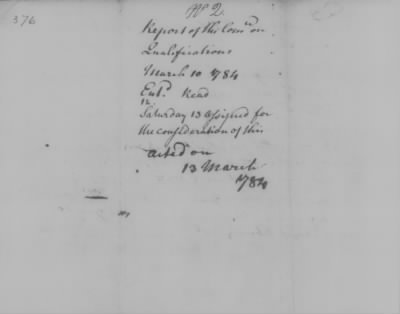 376
No 2.
Report of the Comee on
Qualifications
March 10 1784
Entd. Read
12.
Saturday 13 assigned for
the consideration of this
acted on
13 March
1784